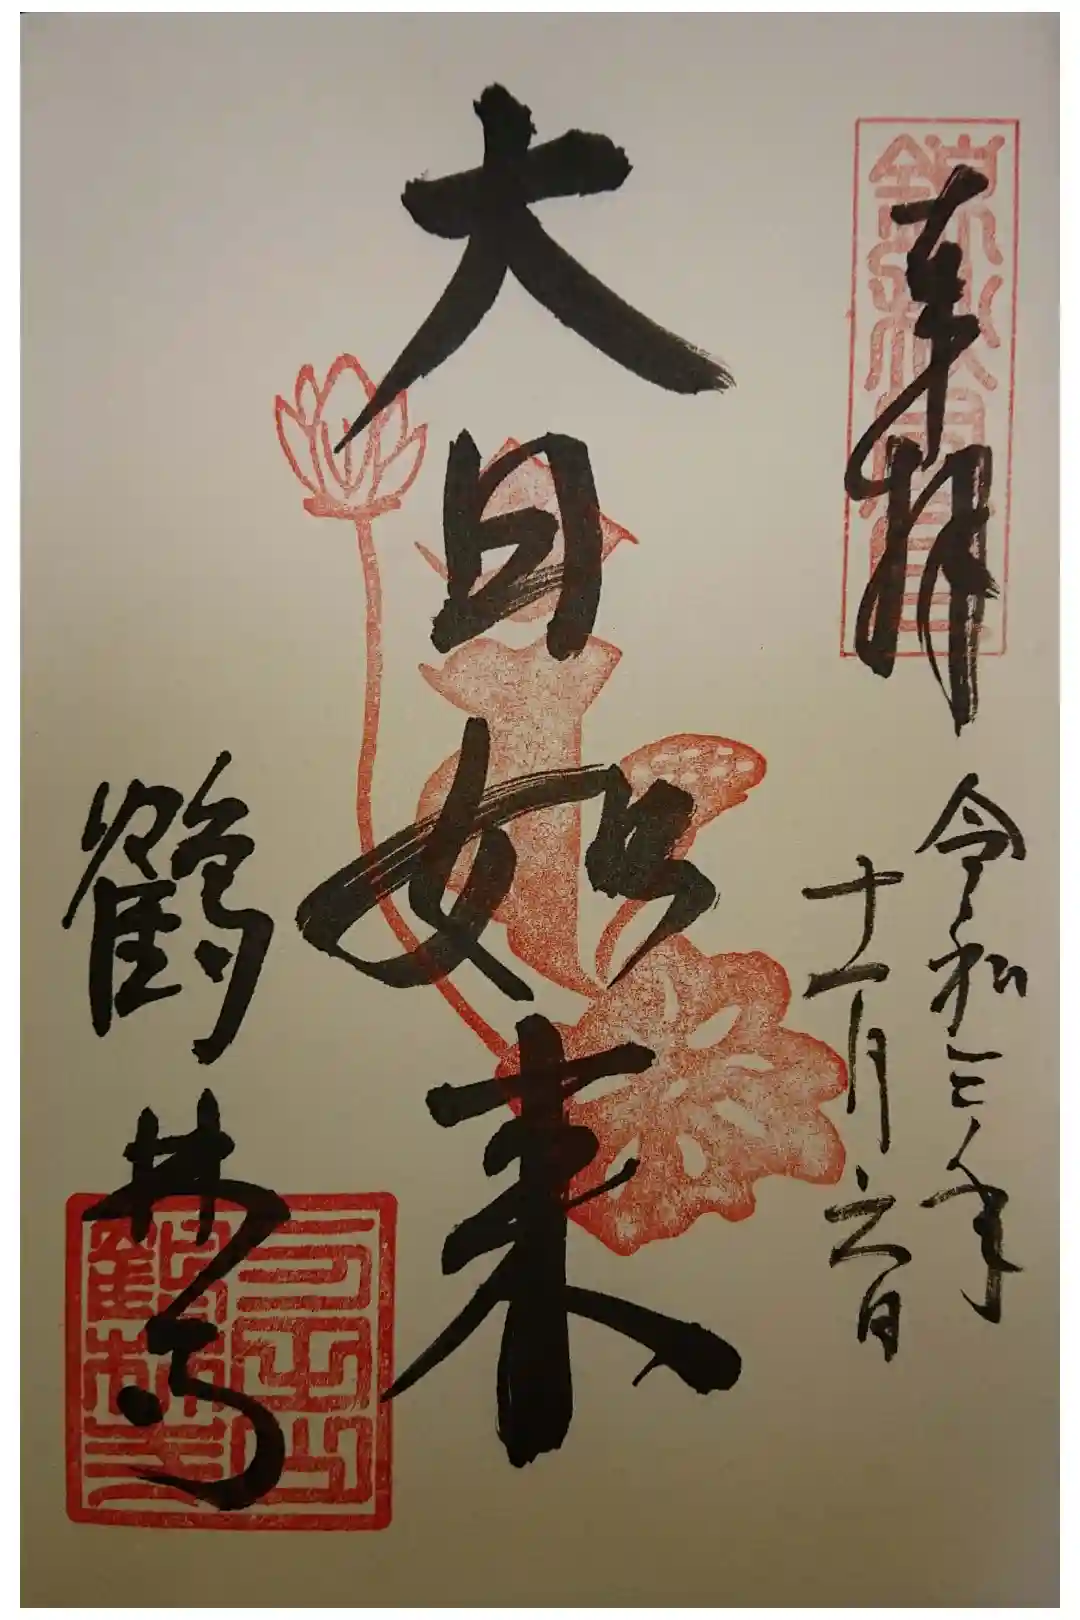 奉拝
令和三年
十一月六日
大日如来
鶴林寺